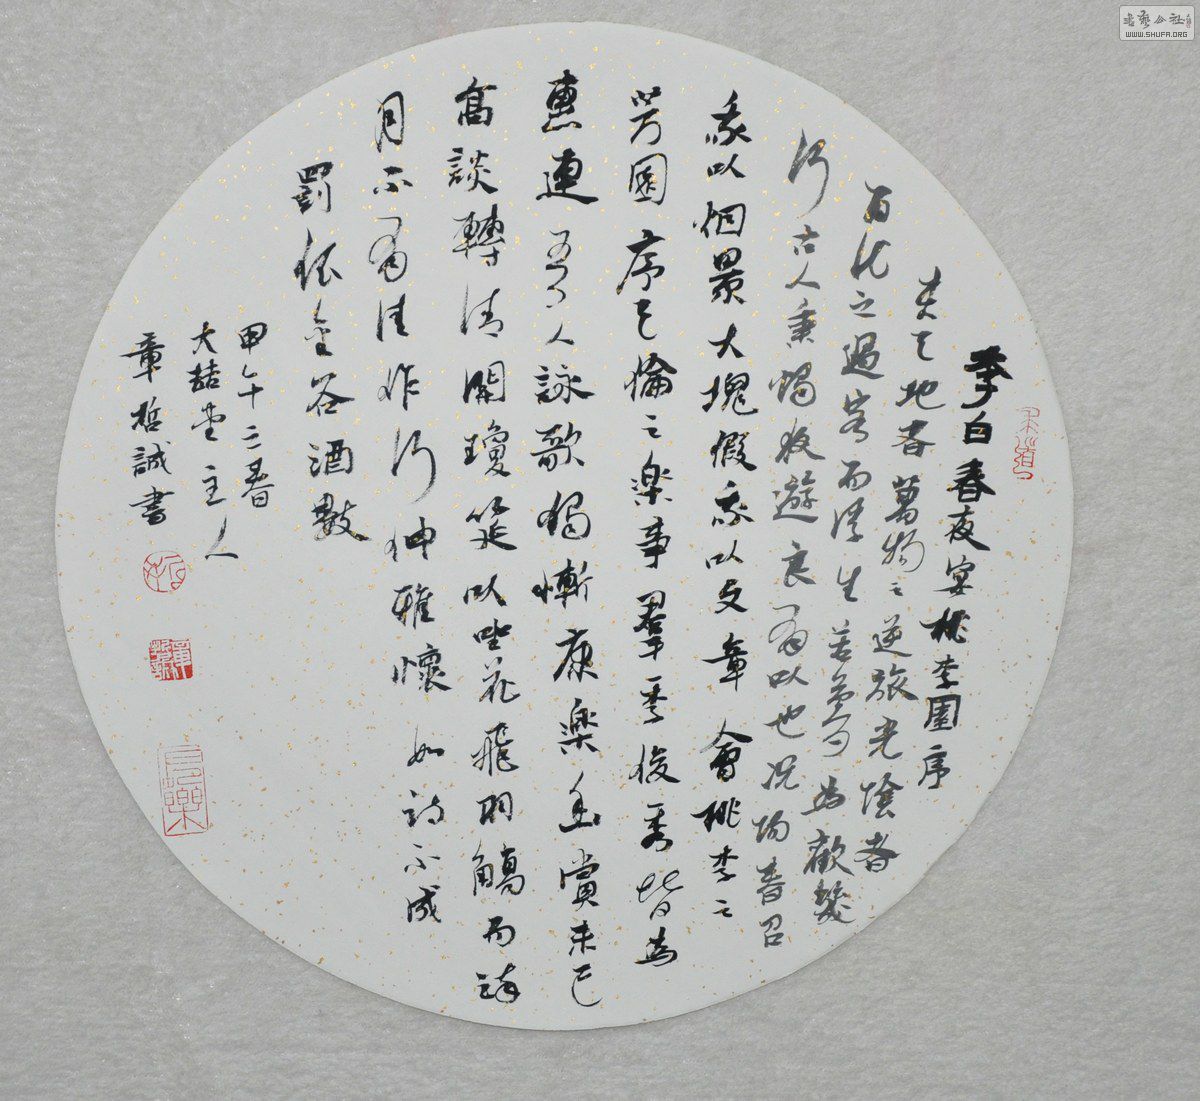 李白春夜宴桃李園序
夫天地者萬物之逆旅光陰者
百代之過客而浮生若夢為歡幾
何古人秉燭夜遊良有以也況陽春召
我以烟景大塊假我以文章會桃李之
芳園序天倫之楽事羣季俊秀皆為
惠連吾人詠歌獨慚康楽幽賞未已
高談轉清開瓊筵以坐花飛羽觴而醉
月不有佳作何伸雅懷如詩不成
罰依金谷酒數
甲午之春
大喆堂主人
章哲誠書
書藝公社
WWW.SHUFA.ORG